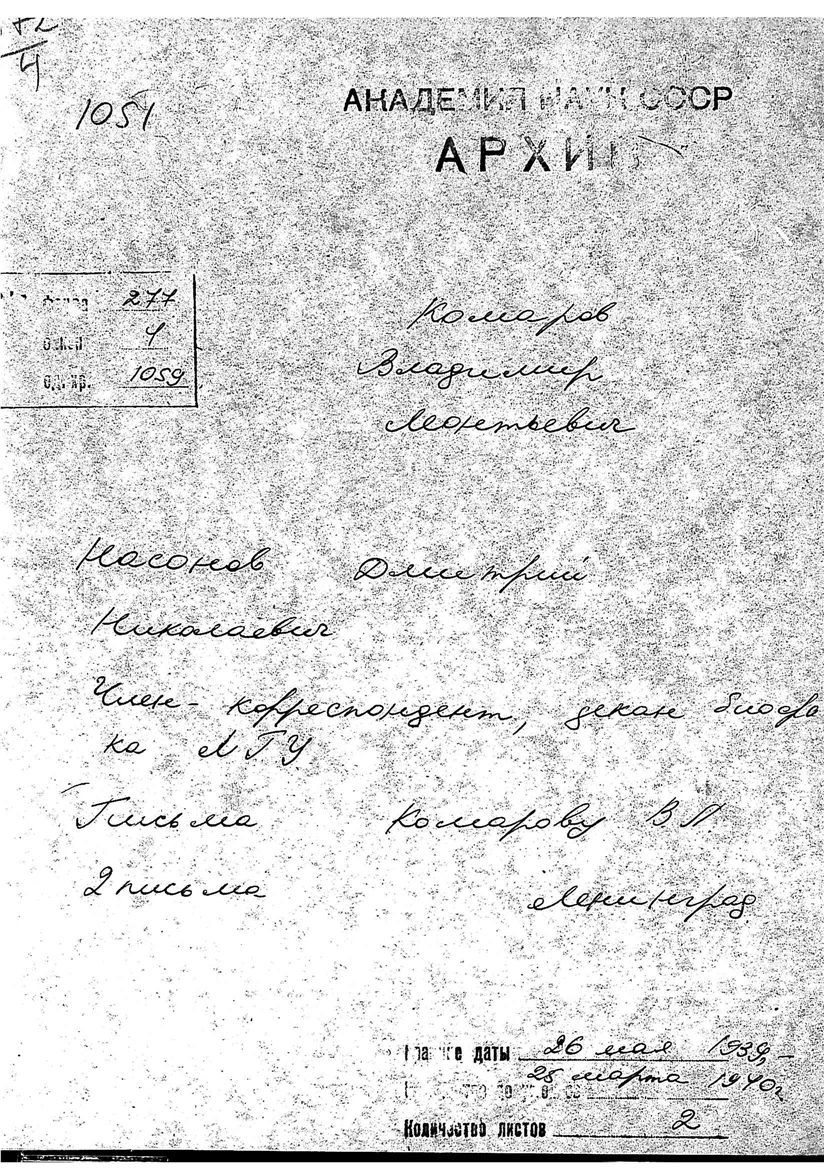 1051
АКАДЕМИЯ НАУК СССР
АРХИВ
фонд 277
опись 4
ед. хр. 1059
Комаров
Владимир
Леонтьевич
Насонов Дмитрий
Николаевич
Член-корреспондент, декан биофа
ка ЛГУ
Письма Комарову В Л
2 письма Ленинград
Крайние даты 26 мая 1939 -
25 марта 1940г
Количество листов 2